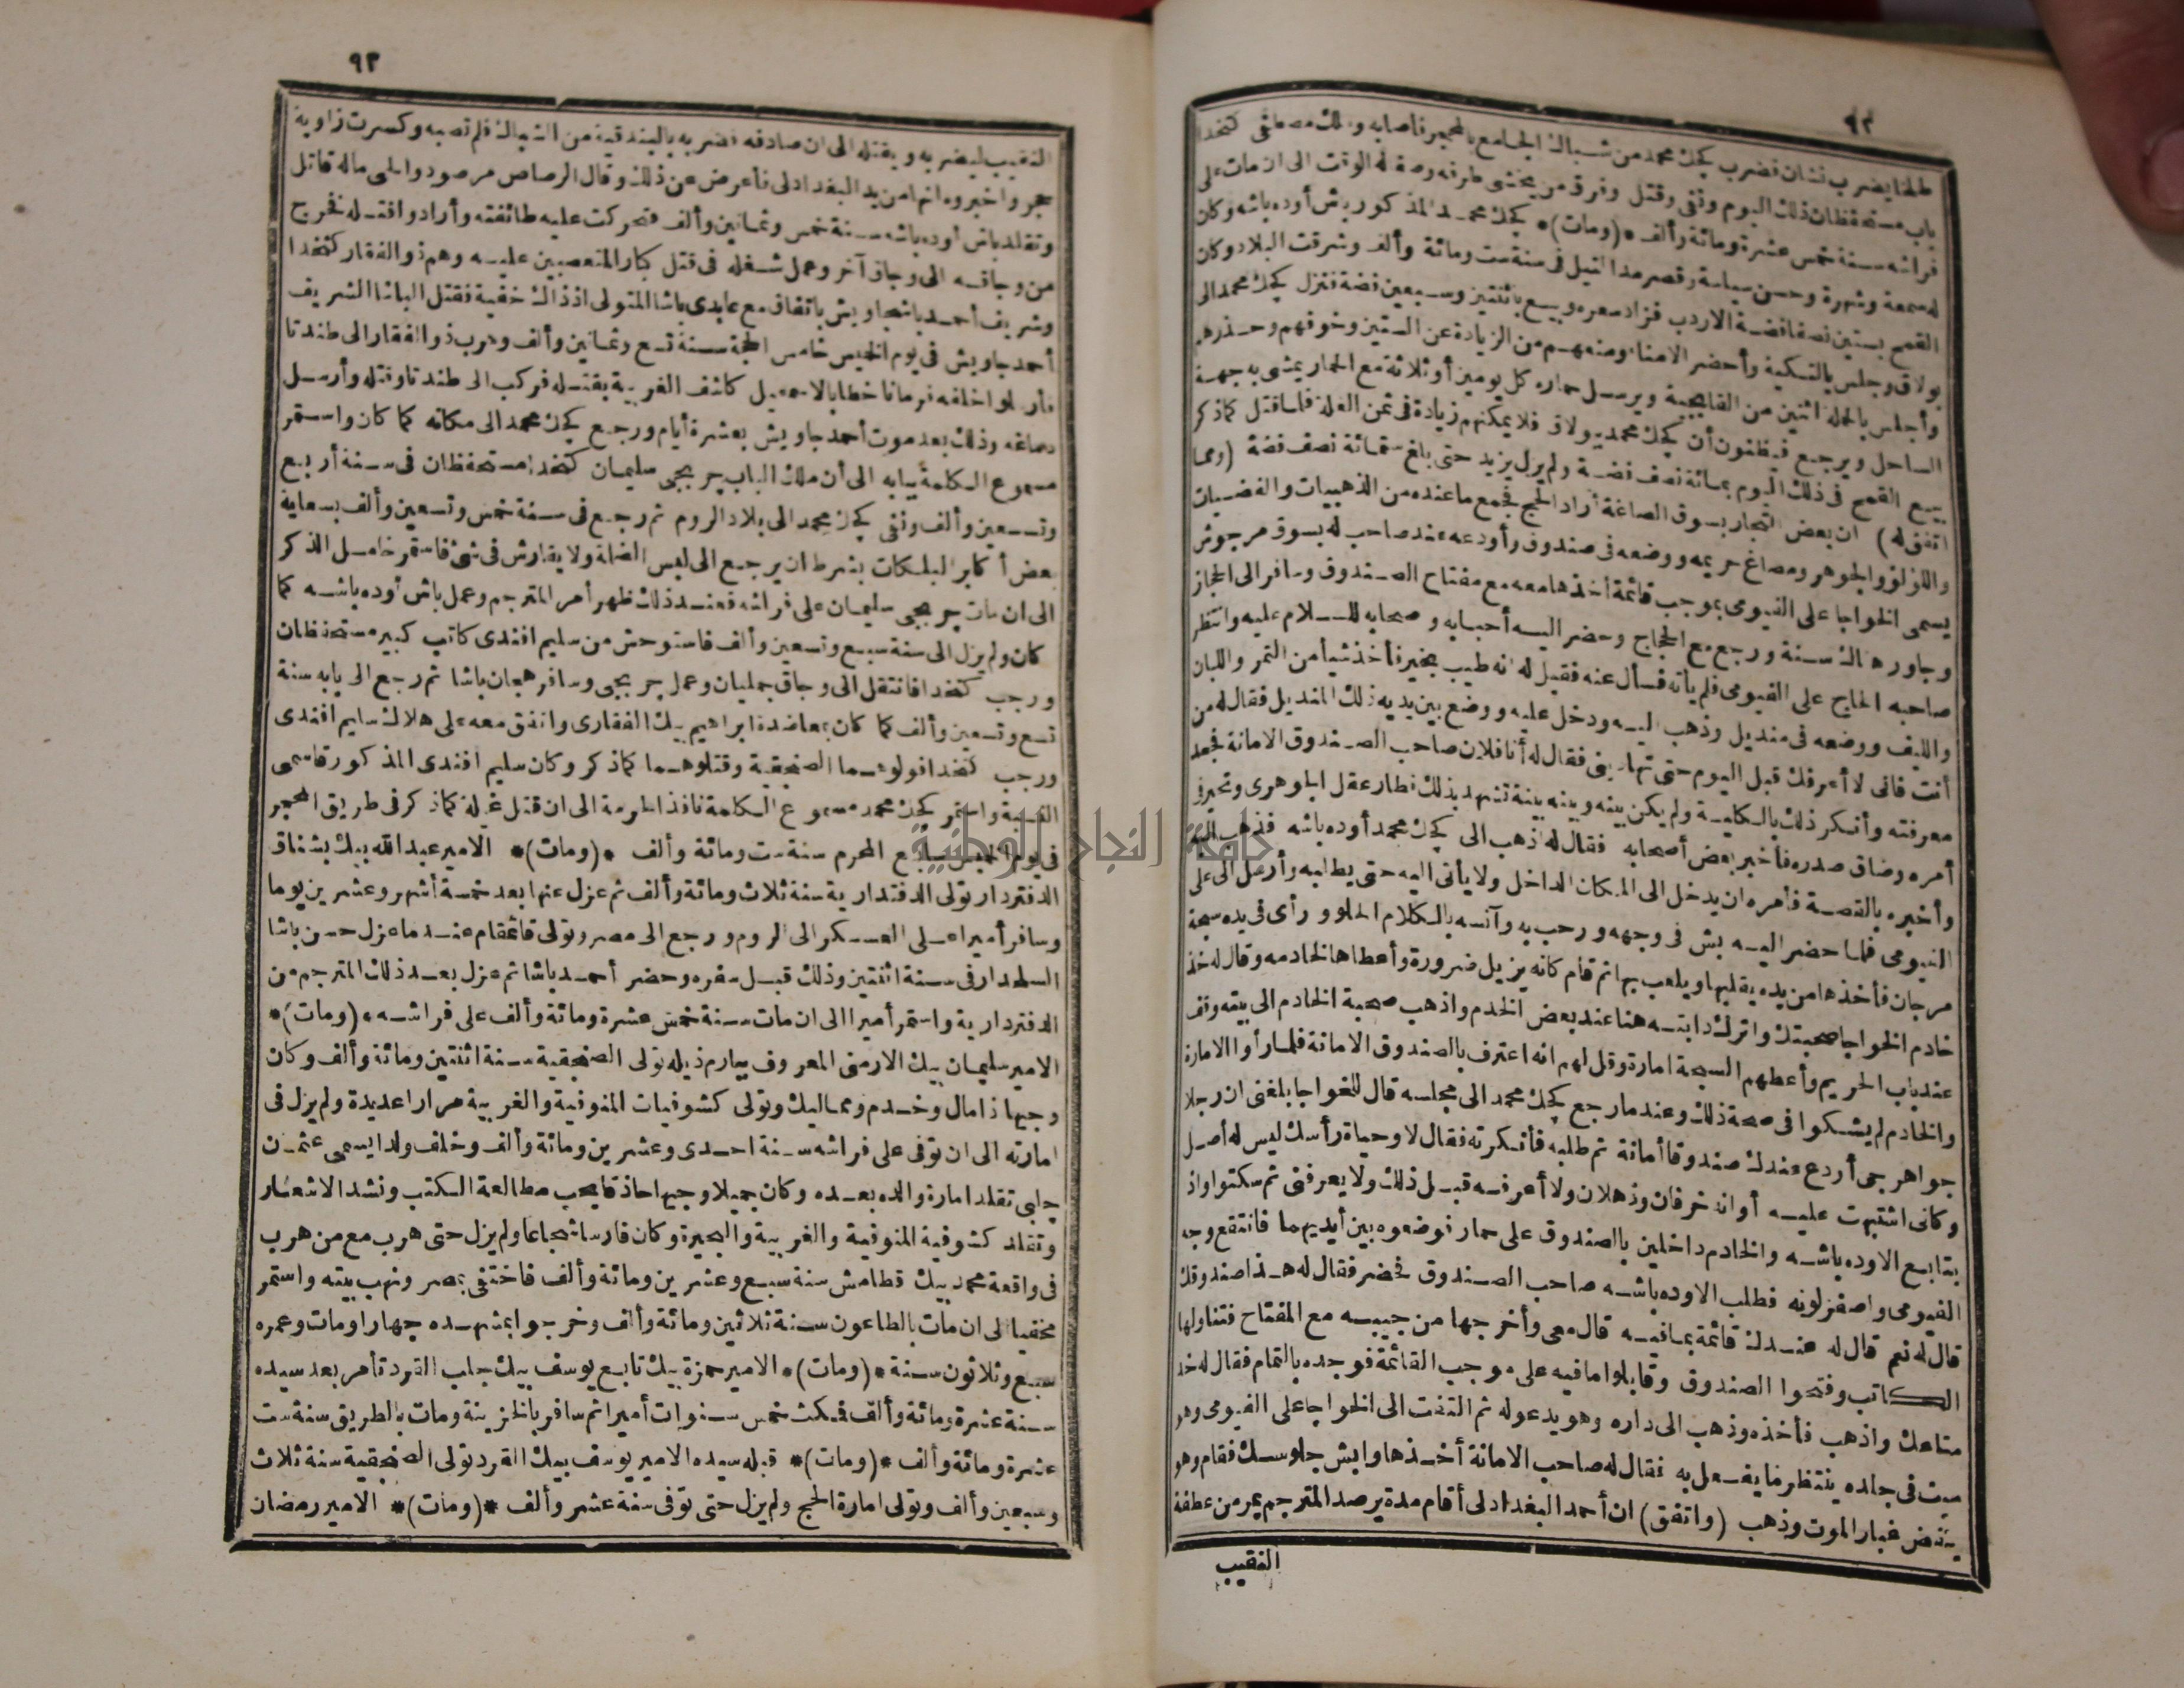 ٩٢
طلخا يضرب نشان فضرب كجك محمد من شباك الجامع بالمحجر فأصابه وملك مصطفى كتخدا
باب مستحفظان ذلك اليوم ونفى وقتل وفرق من يخشى طرفه وصفا له الوقت الى ان مات على
فراشه سنة خمس عشرة ومائة وألف *(ومات)* كجك محمد المذكور باش أوده باشه وكان
له سمعة وشهرة وحسن سياسة وقصر مد النيل فى سنة ست ومائة وألف وشرقت البلاد وكان
القمح بستين نصفا فضة الاردب فزاد سعره وبيع باثنتين وسبعين فضة فنزل كجك محمد الى
بولاق وجلس بالتكية وأحضر الامناء ومنعهم من الزيادة عن الستين وخوفهم وحذرهم
وأجلس بالحملة اثنين من القابجية ويرسل حماره كل يومين أو ثلاثة مع الحمار يمشى به جهة
الساحل ويرجع فيظنون أن كجك محمد ببولاق فلا يمكنهم زيادة فى ثمن الغلة فلما قتل كما ذكر
بيع القمح فى ذلك اليوم بمائة نصف فضة ولم يزل يزيد حتى بلغ ستمائة نصف فضة (ومما
اتفق له) ان بعض التجار بسوق الصاغة أراد الحج فجمع ما عنده من الذهبيات والفضيات
واللؤلؤ والجوهر ومصاغ حريمه ووضعه فى صندوق وأودعه عند صاحب له بسوق مرجوش
يسمى الخواجا على الفيومى بموجب قائمة أخذها معه مع مفتاح الصندوق وسافر الى الحجاز
وجاور هناك سنة ورجع مع الحجاج وحضر اليه أحبابه وصحابه للسلام عليه وانتظر
صاحبه الحاج على الفيومى فلم يأته فسأل عنه فقيل له انه طيب بخير فأخذ شيأ من التمر واللبان
والليف ووضعه فى منديل وذهب اليه ودخل عليه ووضع بين يديه ذلك المنديل فقال له من
أنت فانى لا أعرفك قبل اليوم حتى تهادينى فقال له أنا فلان صاحب الصندوق الامانة فجحد
معرفته وأنكر ذلك بالكلية ولم يكن بينه وبينه بينة تشهد بذلك فطار عقل الجوهرى وتحير فى
أمره وضاق صدره فأخبر بعض أصحابه فقال له اذهب الى كجك محمد أوده باشه فذهب اليه
وأخبره بالقصة فأمره ان يدخل الى المكان الداخل ولا يأتى اليه حتى يطلبه وأرسل الى على
الفيومى فلما حضر اليه بش فى وجهه ورحب به وآنسه بالكلام الحلو ورأى فى يده سبحة
مرجان فأخذها من يده يقلبها ويلعب بها ثم قام كانه يزيل ضرورة وأعطاها لخادمه وقال له خذ
خادم الخواجا صحبتك واترك دابته هنا عند بعض الخدم واذهب صحبة الخادم الى بيته وقف
عند باب الحريم وأعطهم السبحة امارة وقل لهم انه اعترف بالصندوق الامانة فلما رأوا الامارة
والخادم لم يشكوا فى صحة ذلك وعندما رجع كجك محمد الى مجلسه قال للخواجا بلغنى ان رجلا
جواهرجى أودع عندك صندوقا أمانة ثم طلبه فأنكرته فقال لا وحياة رأسك ليس له أصل
وكانى اشتبهت عليه أو انه خرفان وذهلان ولا أعرفه قبل ذلك ولا يعرفنى ثم سكتوا واذ
بتابع الاوده باشه والخادم داخلين بالصندوق على حمار فوضعوه بين أيديهما فانتقع وجه
الفيومى واصفر لونه فطلب الاوده باشه صاحب الصندوق فحضر فقال له هذا صندوقك
قال له نعم قال له عندك قائمة بما فيه قال معى وأخرجها من جيبه مع المفتاح فتناولها
الكاتب وفتحوا الصندوق وقابلوا ما فيه على موجب القائمة فوجده بالتمام فقال له خذ
متاعك واذهب فأخذه وذهب الى داره وهو يدعو له ثم التفت الى الخواجا على الفيومى وهو
ميت فى جلده ينتظر ما يفعل به فقال له صاحب الامانة أخذها وايش جلوسك فقام وهو
ينفض غبار الموت وذهب (واتفق) ان أحمد البغدادلى أقام مدة يرصد المترجم يمر من عطفة
النقيب
٩٣
النقيب ليضربه ويقتله الى ان صادفه فضربه بالبندقية من الشباك فلم تصبه وكسرت زاوية
حجر وأخبروه انها من يد البغدادلى فأعرض عن ذلك وقال الرصاص مرصود والحى ماله قاتل
وتقلد باش أوده باشه سنة خمس وثمانين وألف فتحركت عليه طائفته وأرادوا قتله فخرج
من وجاقه الى وجاق آخر وعمل شغله فى قتل كبار المتعصبين عليه وهم ذو الفقار كتخدا
وشريف أحمد باشجاويش باتفاق مع عابدى باشا المتولى اذ ذاك خفية فقتل الباشا الشريف
أحمد جاويش فى يوم الخميس خامس الحجة سنة تسع وثمانين وألف وهرب ذو الفقار الى طندتا
فأرسلوا خلفه فرمانا خطابا لاسمعيل كاشف الغربية بقتله فركب الى طندتا وقتله وأرسل
دماغه وذلك بعد موت أحمد جاويش بعشرة أيام ورجع كجك محمد الى مكانه كما كان واستمر
مسموع الكلمة ببابه الى أن ملك الباب جربجى سليمان كتخدا مستحفظان فى سنة أربع
وتسعين وألف ونفى كجك محمد الى بلاد الروم ثم رجع فى سنة خمس وتسعين وألف بسعاية
بعض أكابر البلكات بشرط ان يرجع الى لبس الضلمة ولا يقارش فى شئ فاستمر خامل الذكر
الى ان مات جربجى سليمان على فراشه فعند ذلك ظهر أمر المترجم وعمل باش أوده باشه كما
كان ولم يزل الى سنة سبع وتسعين وألف فاستوحش من سليم افندى كاتب كبير مستحفظان
ورجب كتخدا فانتقل الى وجاق جمليان وعمل جربجى وسافر هجان باشا ثم رجع الى بابه سنة
تسع وتسعين وألف كما كان بمعاضدة ابراهيم بيك الفقارى واتفق معه على هلاك سليم افندى
ورجب كتخدا فولوهما الصنجقية وقتلوهما كما ذكر وكان سليم افندى المذكور قاسمى
القسبة واستمر كجك محمد مسموع الكلمة نافذ الحرمة الى ان قتل غيلة كما ذكر فى طريق المحجر
فى يوم الخميس سابع المحرم سنة ست ومائة وألف *(ومات)* الامير عبد الله بيك بشناق
الدفتردار تولى الدفتدارية سنة ثلاث ومائة وألف ثم عزل عنها بعد خمسة أشهر وعشرين يوما
وسافر أميرا على العسكر الى الروم ورجع الى مصر وتولى قائمقام عندما عزل حسن باشا
السلحدار فى سنة اثنتين وذلك قبل سفره وحضر أحمد باشا ثم عزل بعد ذلك المترجم من
الدفتردارية واستمر أميرا الى ان مات سنة خمس عشرة ومائة وألف على فراشه *(ومات)*
الامير سليمان بيك الارمنى المعروف ببارم ذيله تولى الصنجقية سنة اثنتين ومائة وألف وكان
وجيها ذا مال وخدم ومماليك وتولى كشوفيات المنوفية والغربية مرارا عديدة ولم يزل فى
امارته الى ان توفى على فراشه سنة احدى وعشرين ومائة وألف وخلف ولدا يسمى عثمن
جلبى تقلد امارة والده بعده وكان جميلا وجيها حاذقا يحب مطالعة الكتب ونشد الاشعار
وتقلد كشوفية المنوفية والغربية والبحيرة وكان فارسا شجاعا ولم يزل حتى هرب مع من هرب
فى واقعة محمد بيك قطامش سنة سبع وعشرين ومائة وألف فاختفى بمصر ونهب بيته واستمر
مخفيا الى ان مات بالطاعون سنة ثلاثين ومائة وألف وخرجوا بمشهده جهارا ومات وعمره
سبع وثلاثون سنة *(ومات)* الامير حمزة بيك تابع يوسف بيك جلب القرد تأمر بعد سيده
سنة عشرة ومائة وألف فمكث خمس سنوات أميرا ثم سافر بالخزينة ومات بالطريق سنة ست
عشرة ومائة وألف *(ومات)* قبله سيده الامير يوسف بيك القرد تولى الصنجقية سنة ثلاث
وسبعين وألف وتولى امارة الحج ولم يزل حتى توفى سنة عشر وألف *(ومات)* الامير رمضان
جامعة النجاح الوطنية